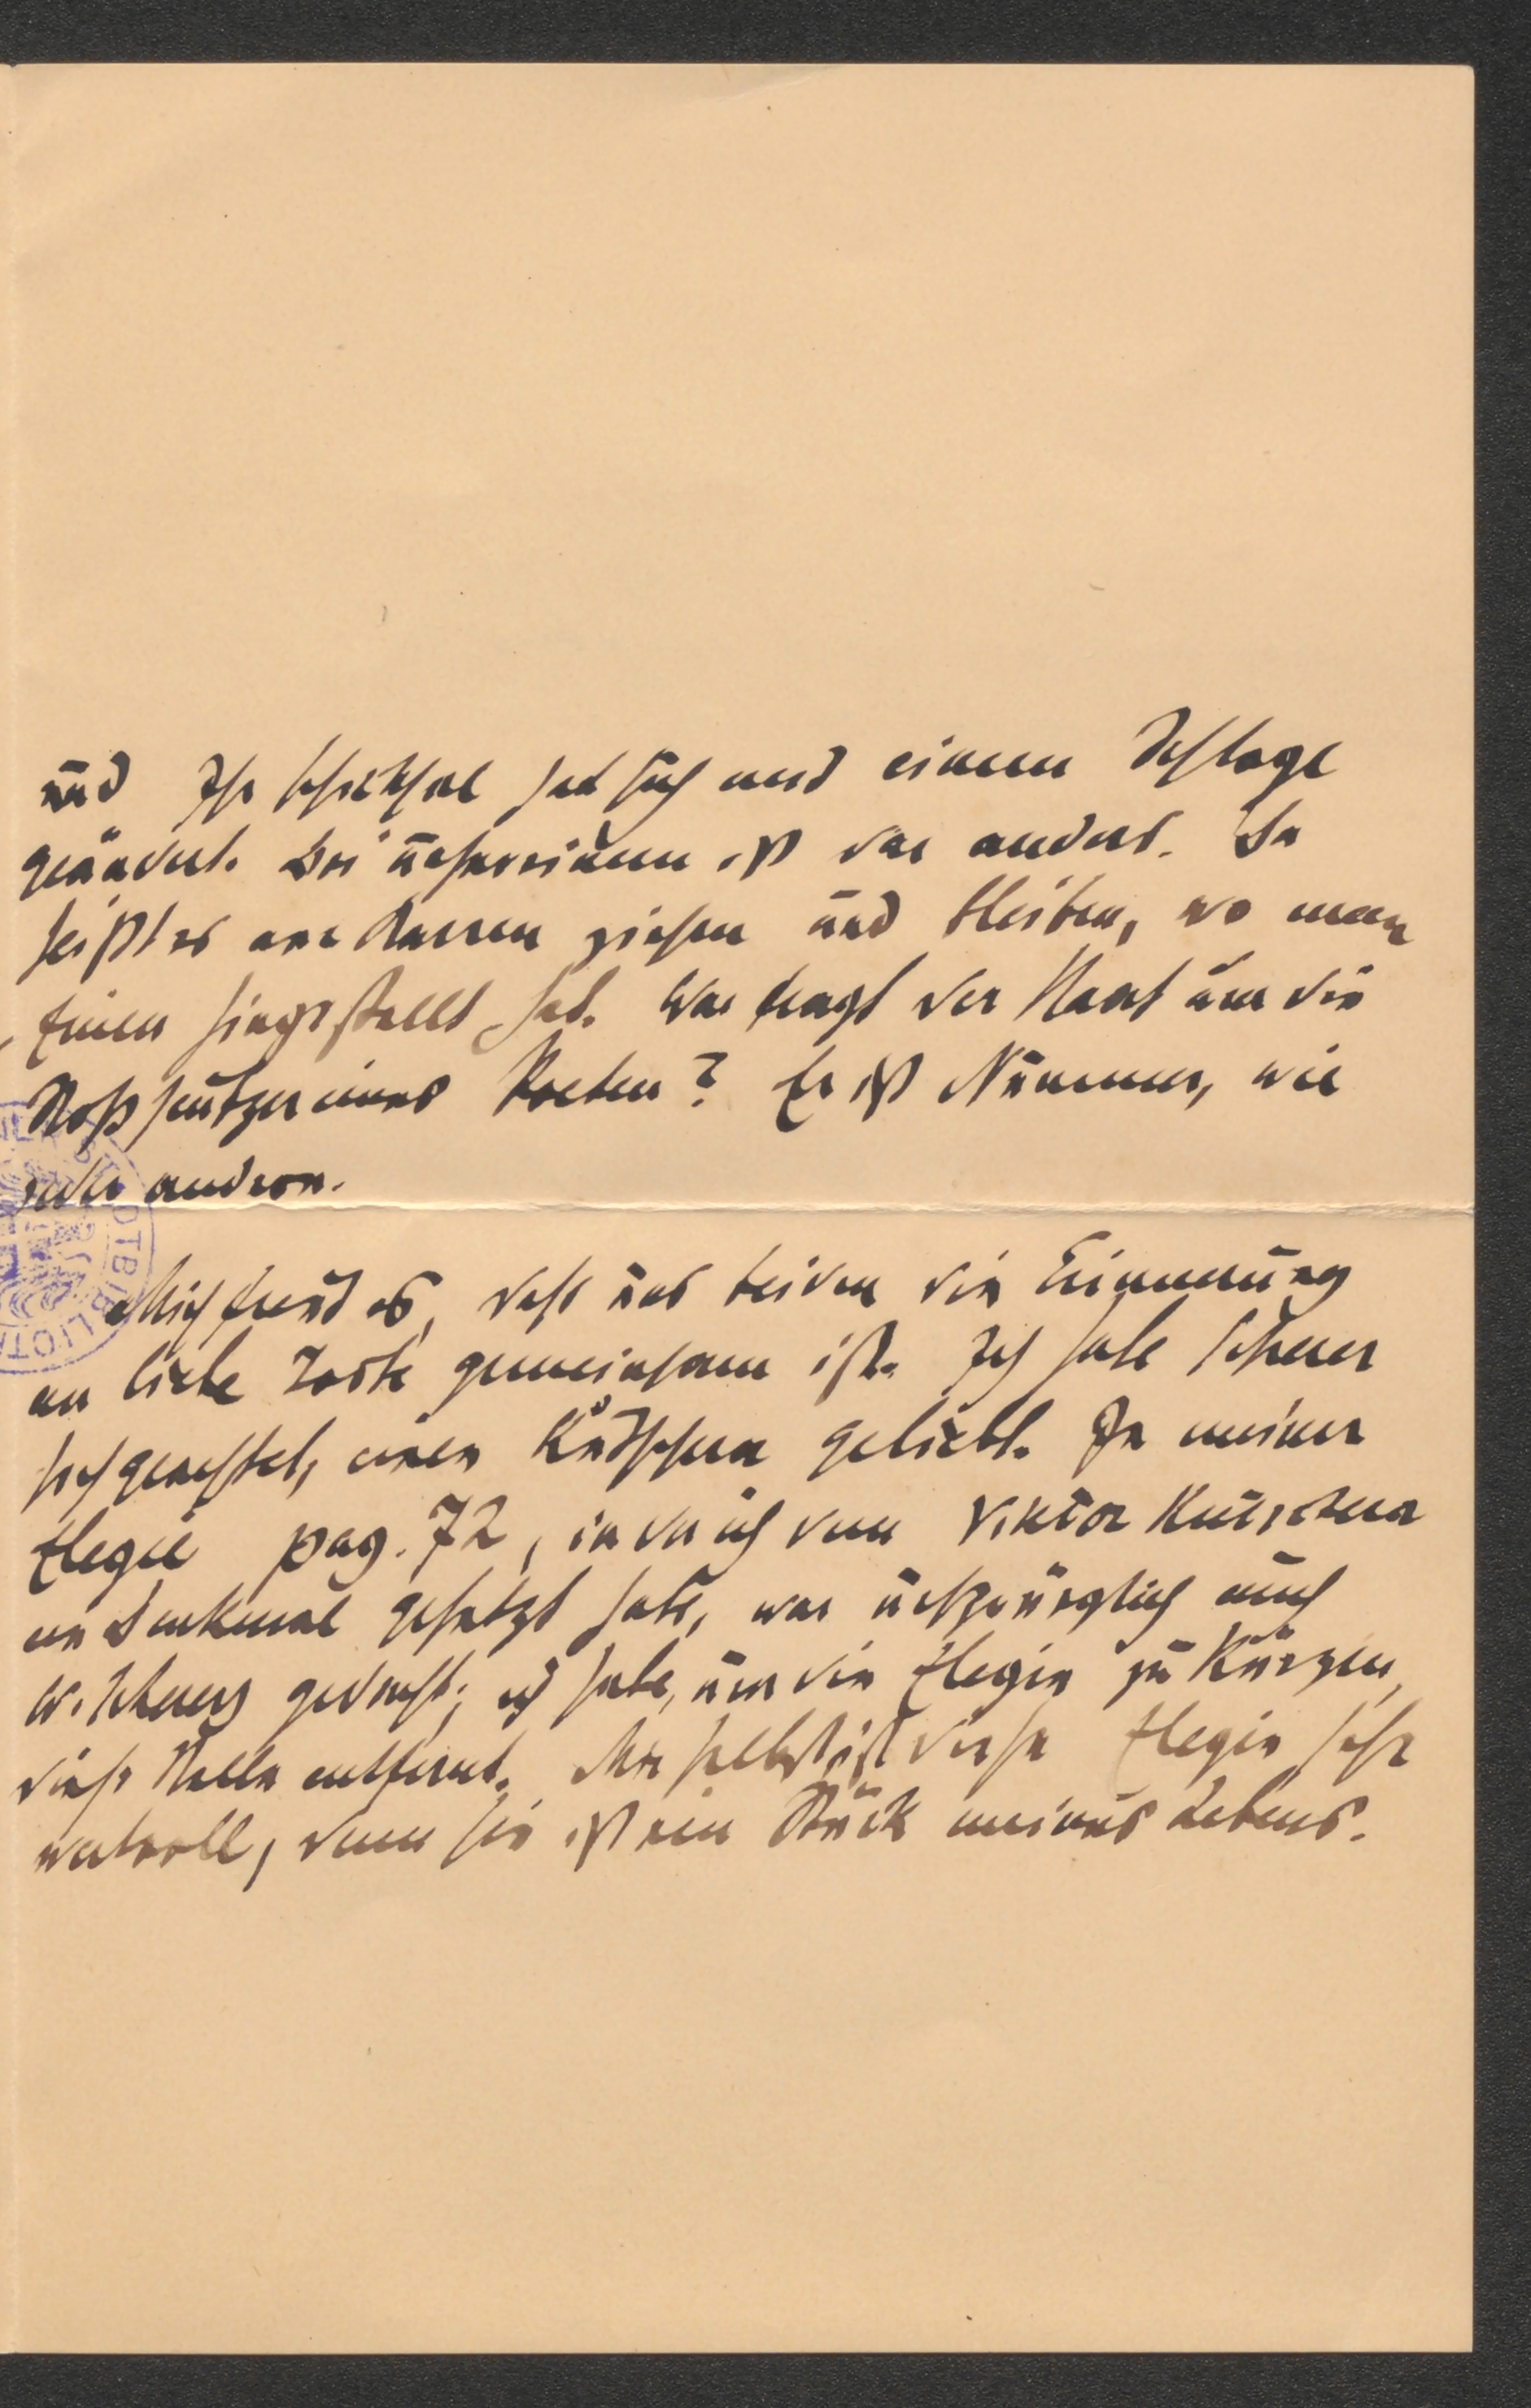 und Ihr Schicksal hat sich mit einem Schlage
geändert. Bei unsereinem ist das anders. Da
heißt es am Karren ziehen und bleiben, wo man
Einen hingestellt hat. Was fragt der Staat um die
Stoßseufzer eines Poeten? Er ist Nummer, wie
jeder andere.
Mich freut es, dass uns beiden die Erinnerung
an liebe Tote gemeinsam ist. Ich habe Scherer
hochgeachtet, einen Kutschera geliebt. In meiner
Elegie pag. 72, in der ich dem Viktor Kutschera
ein Denkmal gesetzt habe, war ursprünglich auch
W. Scherers gedacht; ich habe, um die Elegie zu kürzen,
diese Stelle entfernt. Mir selbst ist diese Elegie sehr
wertvoll, denn sie ist ein Stück meines Lebens.